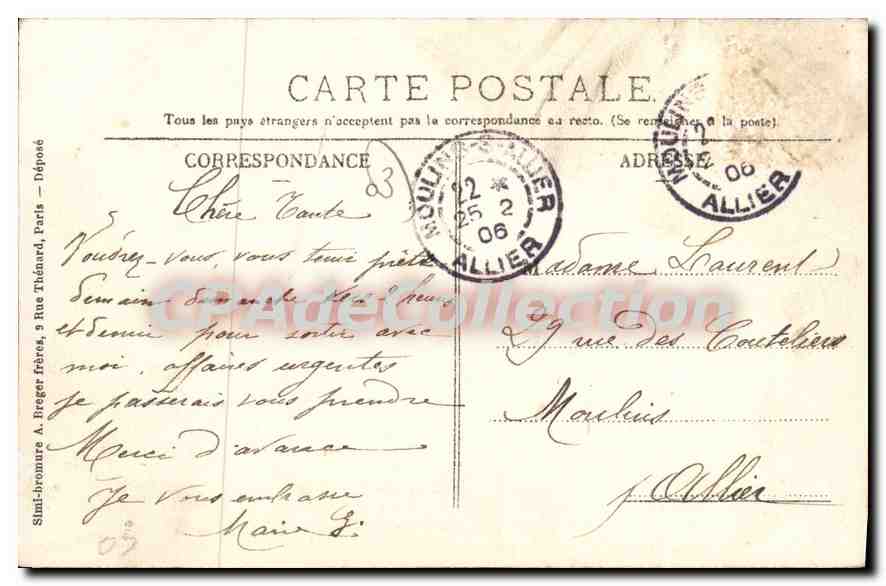 CARTE POSTALE
Tous les pays étrangers n'acceptent pas la correspondance au recto. (Se renseigner à la poste).
CORRESPONDANCE
ADRESSE
Simi-bromure A. Breger frères, 9 Rue Thénard, Paris — Déposé
03
Chère Tante
Voudrez-vous, vous tenir prête
demain dimanche heures
et demie pour sortir avec
moi, affaires urgentes
je passerais vous prendre
Merci d'avance
Je vous embrasse
Marie G.
MOULINS-S-ALLIER
22 *
25 2
06
ALLIER
MOULINS
2
06
ALLIER
Madame Laurent
29 rue des Couteliers
Moulins
Allier
CPAdeCollection